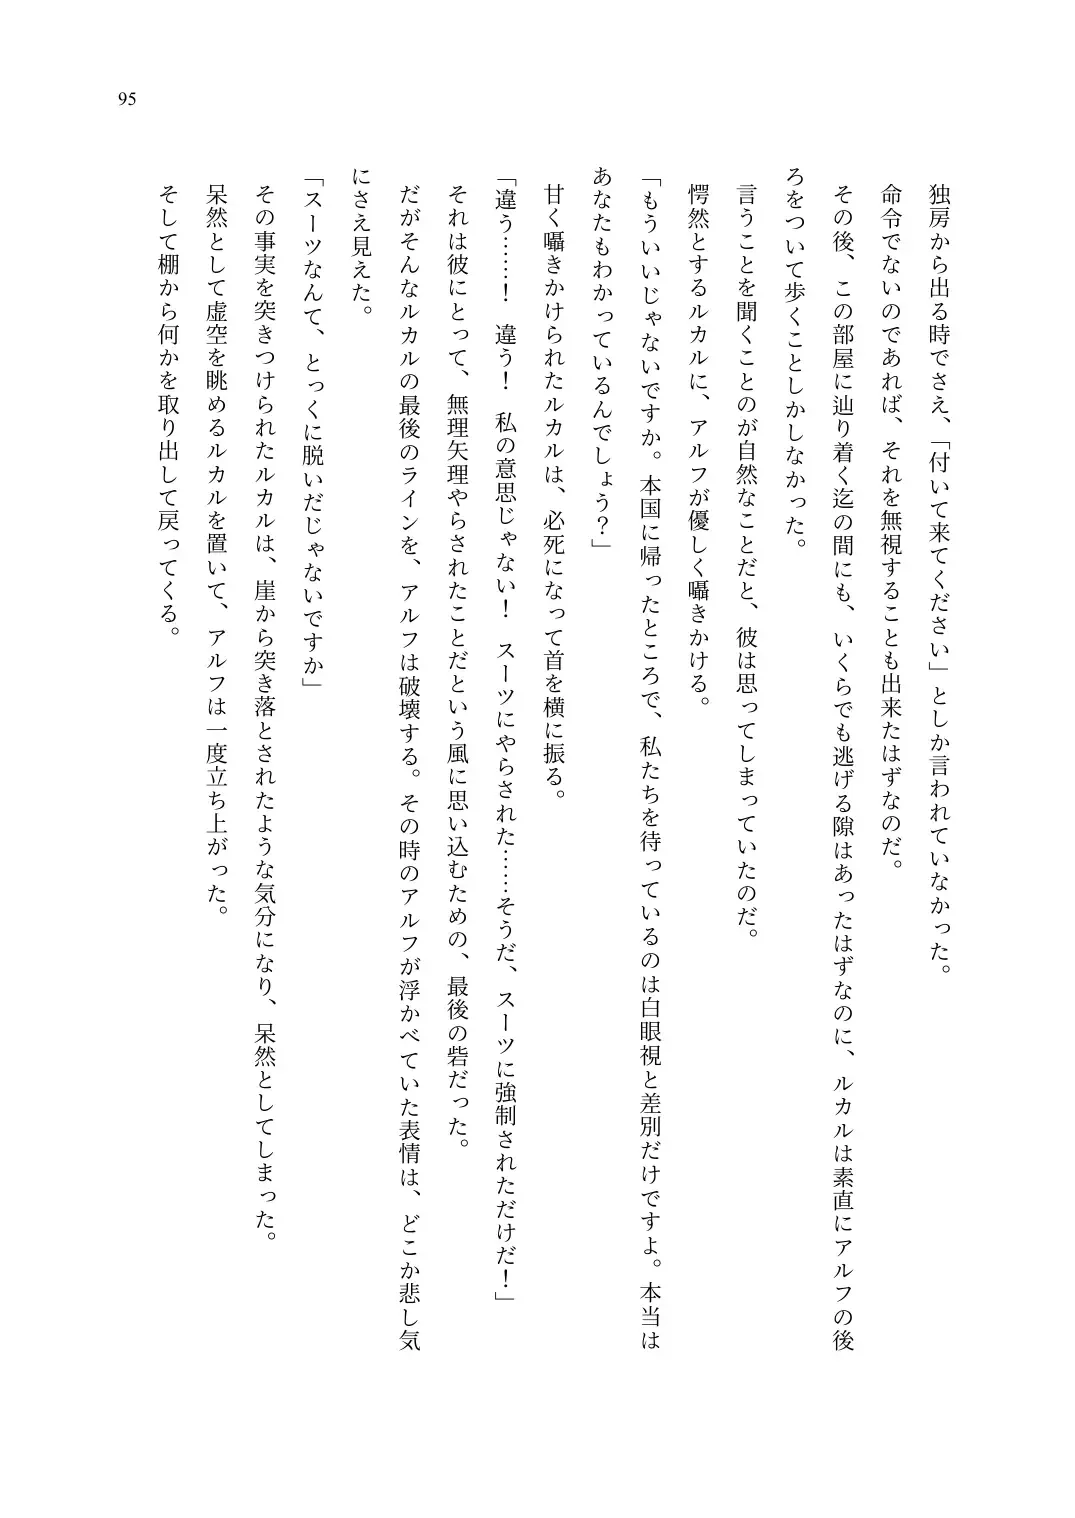 95
独房から出る時でさえ、「付いて来てください」としか言われていなかった。
命令でないのであれば、それを無視することも出来たはずなのだ。
その後、この部屋に辿り着く迄の間にも、いくらでも逃げる隙はあったはずなのに、ルカルは素直にアルフの後
ろをついて歩くことしかしなかった。
言うことを聞くことのが自然なことだと、彼は思ってしまっていたのだ。
愕然とするルカルに、アルフが優しく囁きかける。
「もういいじゃないですか。本国に帰ったところで、私たちを待っているのは白眼視と差別だけですよ。本当は
あなたもわかっているんでしょう？」
甘く囁きかけられたルカルは、必死になって首を横に振る。
「違う……！　違う！　私の意思じゃない！　スーツにやらされた……そうだ、スーツに強制されただけだ！」
それは彼にとって、無理矢理やらされたことだという風に思い込むための、最後の砦だった。
だがそんなルカルの最後のラインを、アルフは破壊する。その時のアルフが浮かべていた表情は、どこか悲し気
にさえ見えた。
「スーツなんて、とっくに脱いだじゃないですか」
その事実を突きつけられたルカルは、崖から突き落とされたような気分になり、呆然としてしまった。
呆然として虚空を眺めるルカルを置いて、アルフは一度立ち上がった。
そして棚から何かを取り出して戻ってくる。